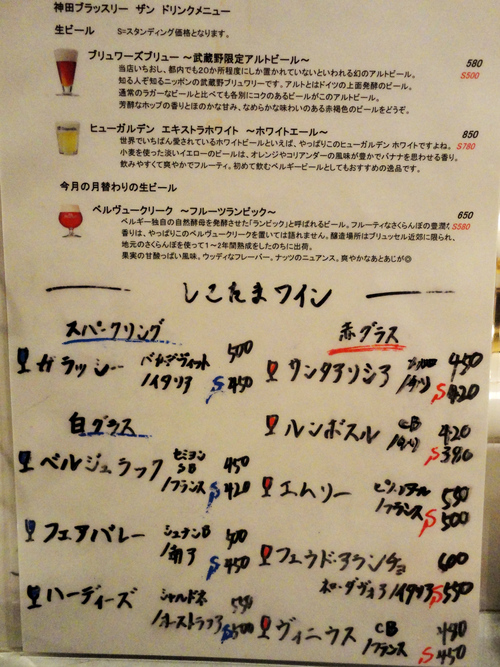 神田ブラッスリー ザン ドリンクメニュー
生ビール S=スタンディング価格となります。
ブリュワーズブリュー ~武蔵野限定アルトビール~ 580
S500
当店いちおし、都内でも20か所程度にしか置かれていないといわれる幻のアルトビール。
知る人ぞ知るニッポンの武蔵野ブリュワリーです。アルトとはドイツの上面発酵のビール。
通常のラガーなビールと比べても各別にコクのあるビールがこのアルトビール。
芳醇なホップの香りとほのかな甘み、なめらかな味わいのある赤褐色のビールをどうぞ。
ヒューガルデン エキストラホワイト ~ホワイトエール~ 850
世界でいちばん愛されているホワイトビールといえば、やっぱりこのヒューガルデン ホワイトですよね。 S780
小麦を使った淡いイエローのビールは、オレンジやコリアンダーの風味が豊かでバナナを思わせる香り。
飲みやすくて爽やかでフルーティ。初めて飲むベルギービールとしてもおすすめの逸品です。
今月の月替わりの生ビール
ベルヴュークリーク ~フルーツランビック~ 650
ベルギー独自の自然酵母を発酵させた「ランビック」と呼ばれるビール。フルーティなさくらんぼの豊潤な S580
香りは、やっぱりこのベルヴュークリークを置いては語れません。醸造場所はブリュッセル近郊に限られ、
地元のさくらんぼを使って1~2年間熟成をしたのちに出荷。
果実の甘酸っぱい風味、ウッディなフレーバー、ナッツのニュアンス。爽やかなあとあじが◎
しこたまワイン
スパークリング
ガラッシー /イタリア 500
S450
白グラス
ベルジュラック セミヨン SB /フランス 450
S420
フェアバレー シュナンB /南ア 500
S450
ハーディーズ シャルドネ /オーストラリア 550
S500
赤グラス
サンタアリシア /チリ 450
S420
ルンボスル CB /チリ 420
S390
エムリー ピノノアール /フランス 550
S500
フェウド・アランチョ 600
ネロ・ダヴォラ /イタリア S550
ヴィニウス CB /フランス 480
S450